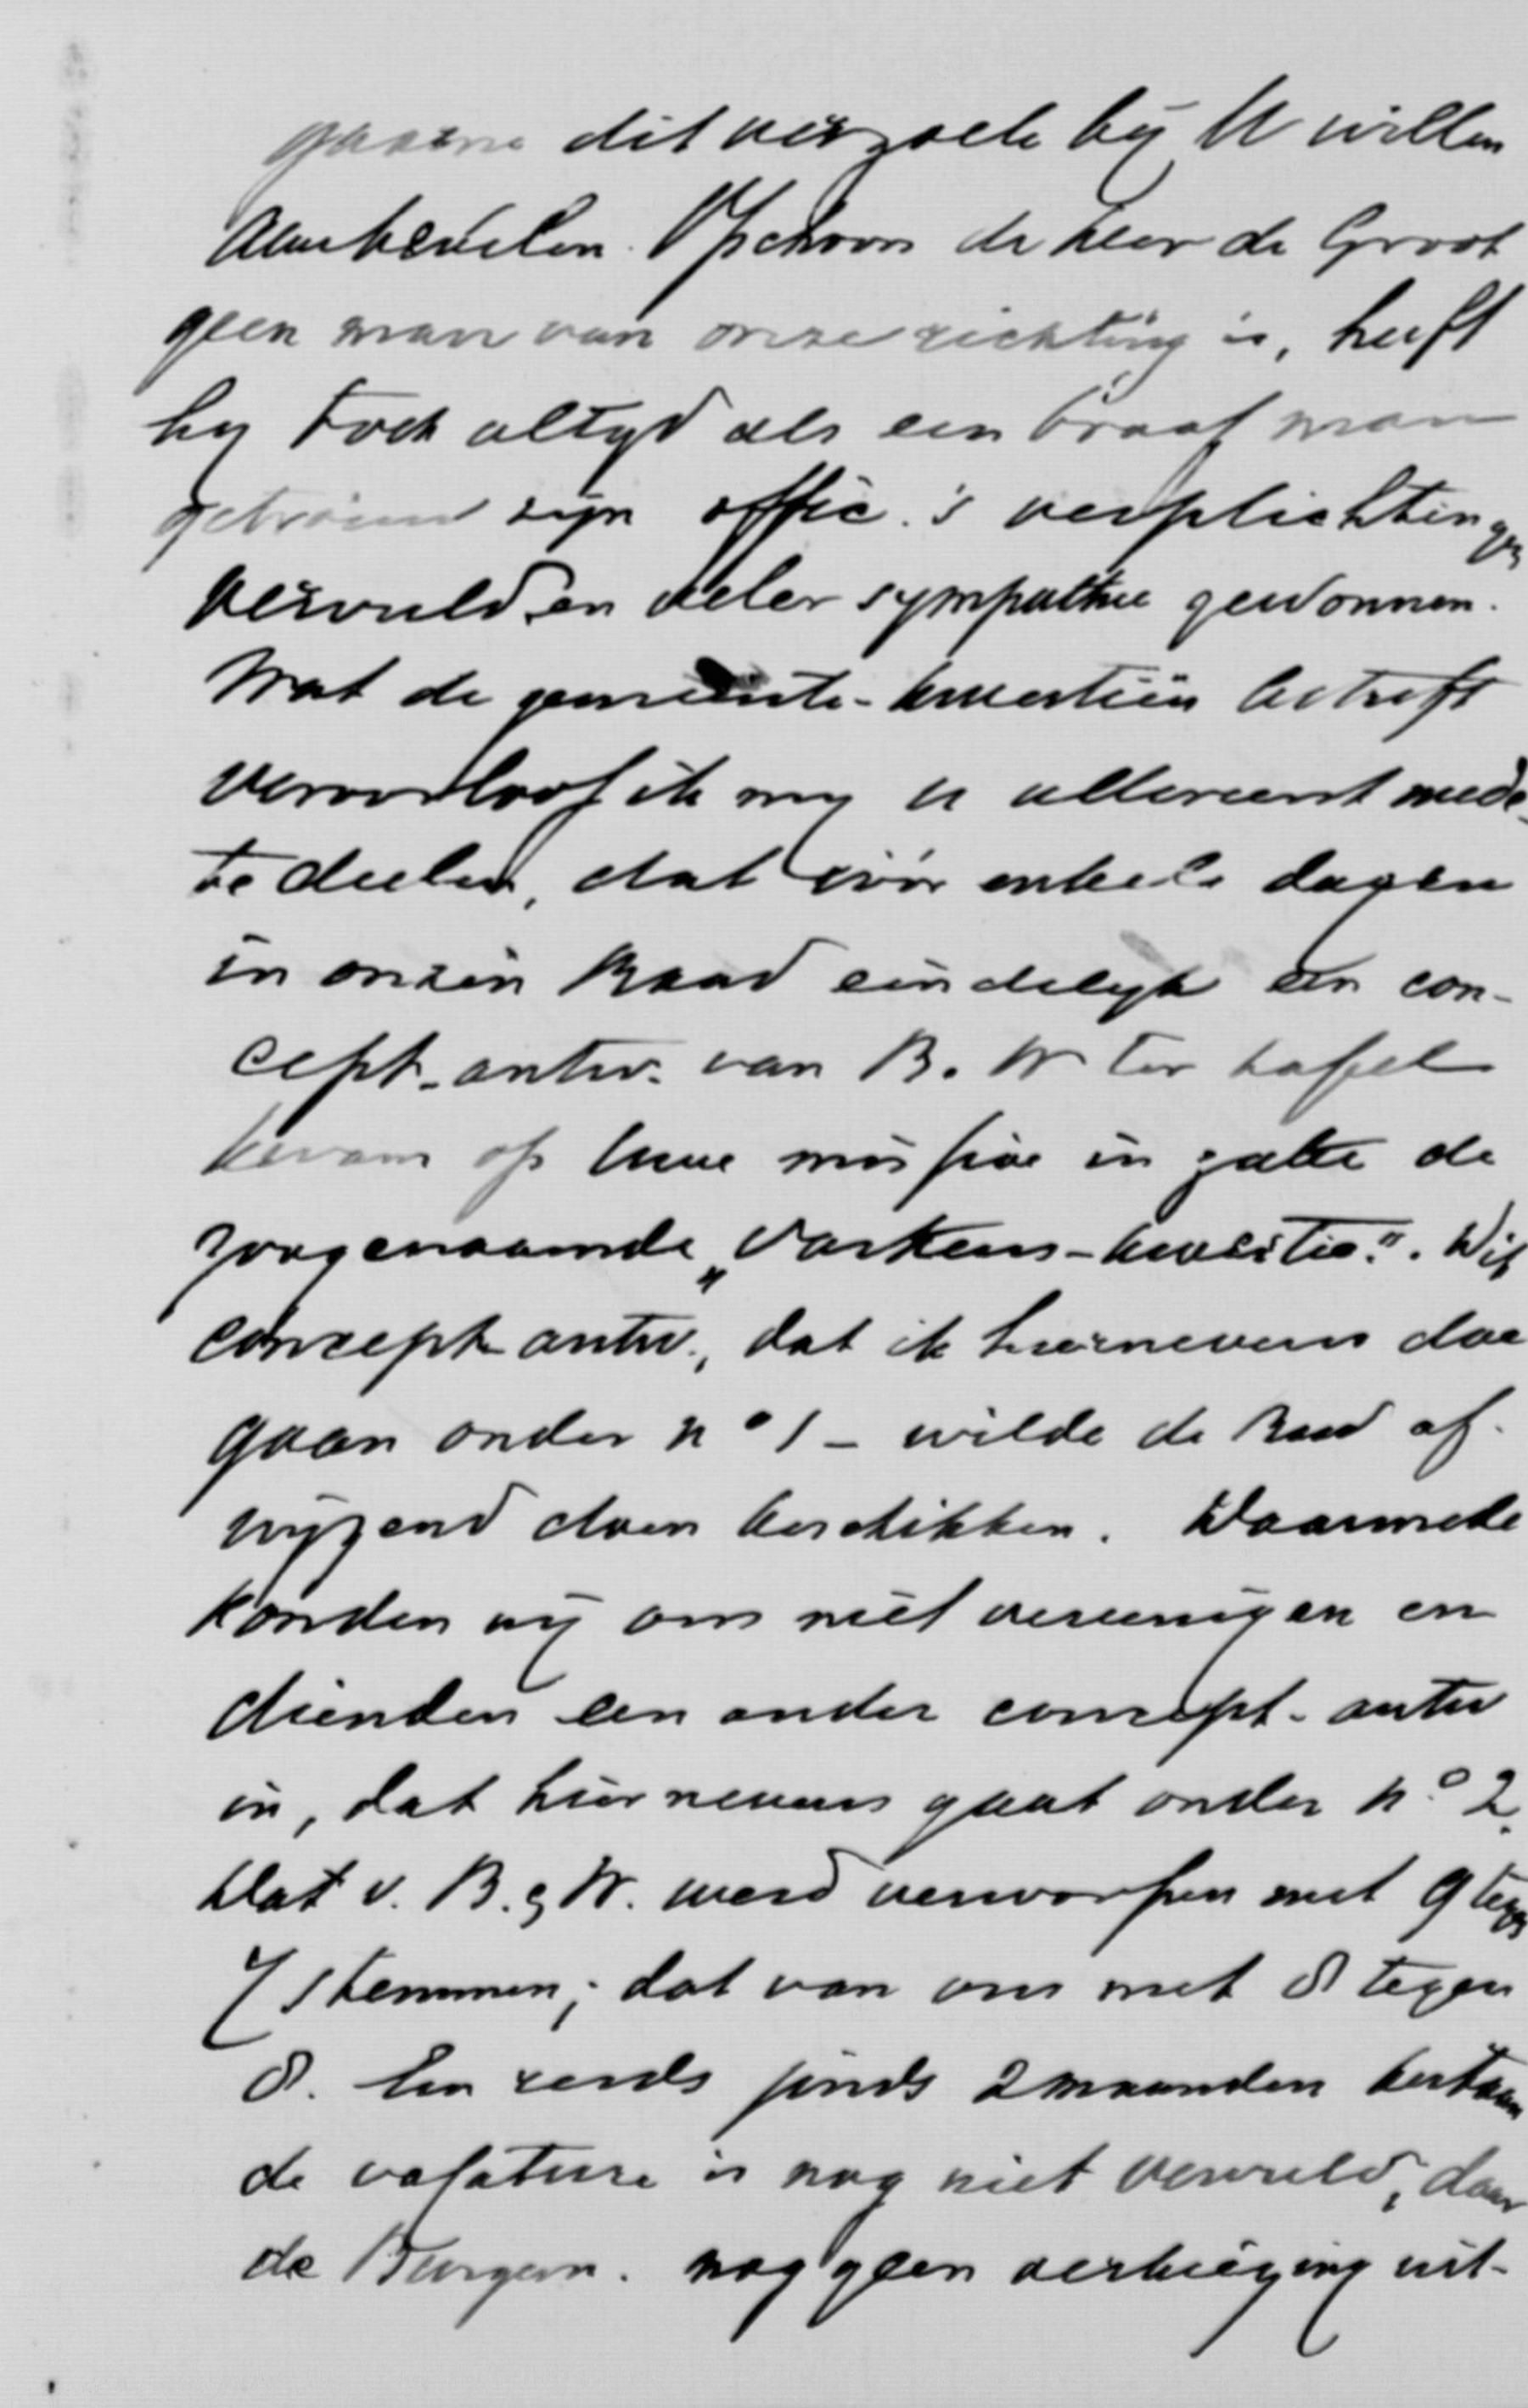 gaarne dit verzoek bij U willen
aanbevelen. Ofschoon de heer de Groot
geen man van onze richting is, heeft
hij toch altijd als een braaf man
getrouw zijn offic.'s verplichtingen
vervuld en veler sympathie gewonnen.
Wat de gemeente-kwestiën betreft
veroorloof ik mij U allereerst mede-
te deelen, dat vóór enkele dagen
in onzen Raad eindelijk een con-
cept-antw. van B. W ter tafel
kwam op Uwe missive in zake de
zoogenaamde „Varkens-kwestie". Dit
concept antw., dat ik hiernevens doe
gaan onder no 1 - wilde de Raad af-
wijzend doen beschikken. Daarmede
konden wij ons niet vereenigen en
dienden een ander concept-antw
in, dat hiernevens gaat onder no 2.
Dat v. B. & W. werd verworpen met 9 tegen
7 stemmen; dat van ons met 8 tegen
8. Een reeds sinds 2 maanden bestaan
de vacature is nog niet vervuld, daar
de Burgem. nog geen verkiezing uit-